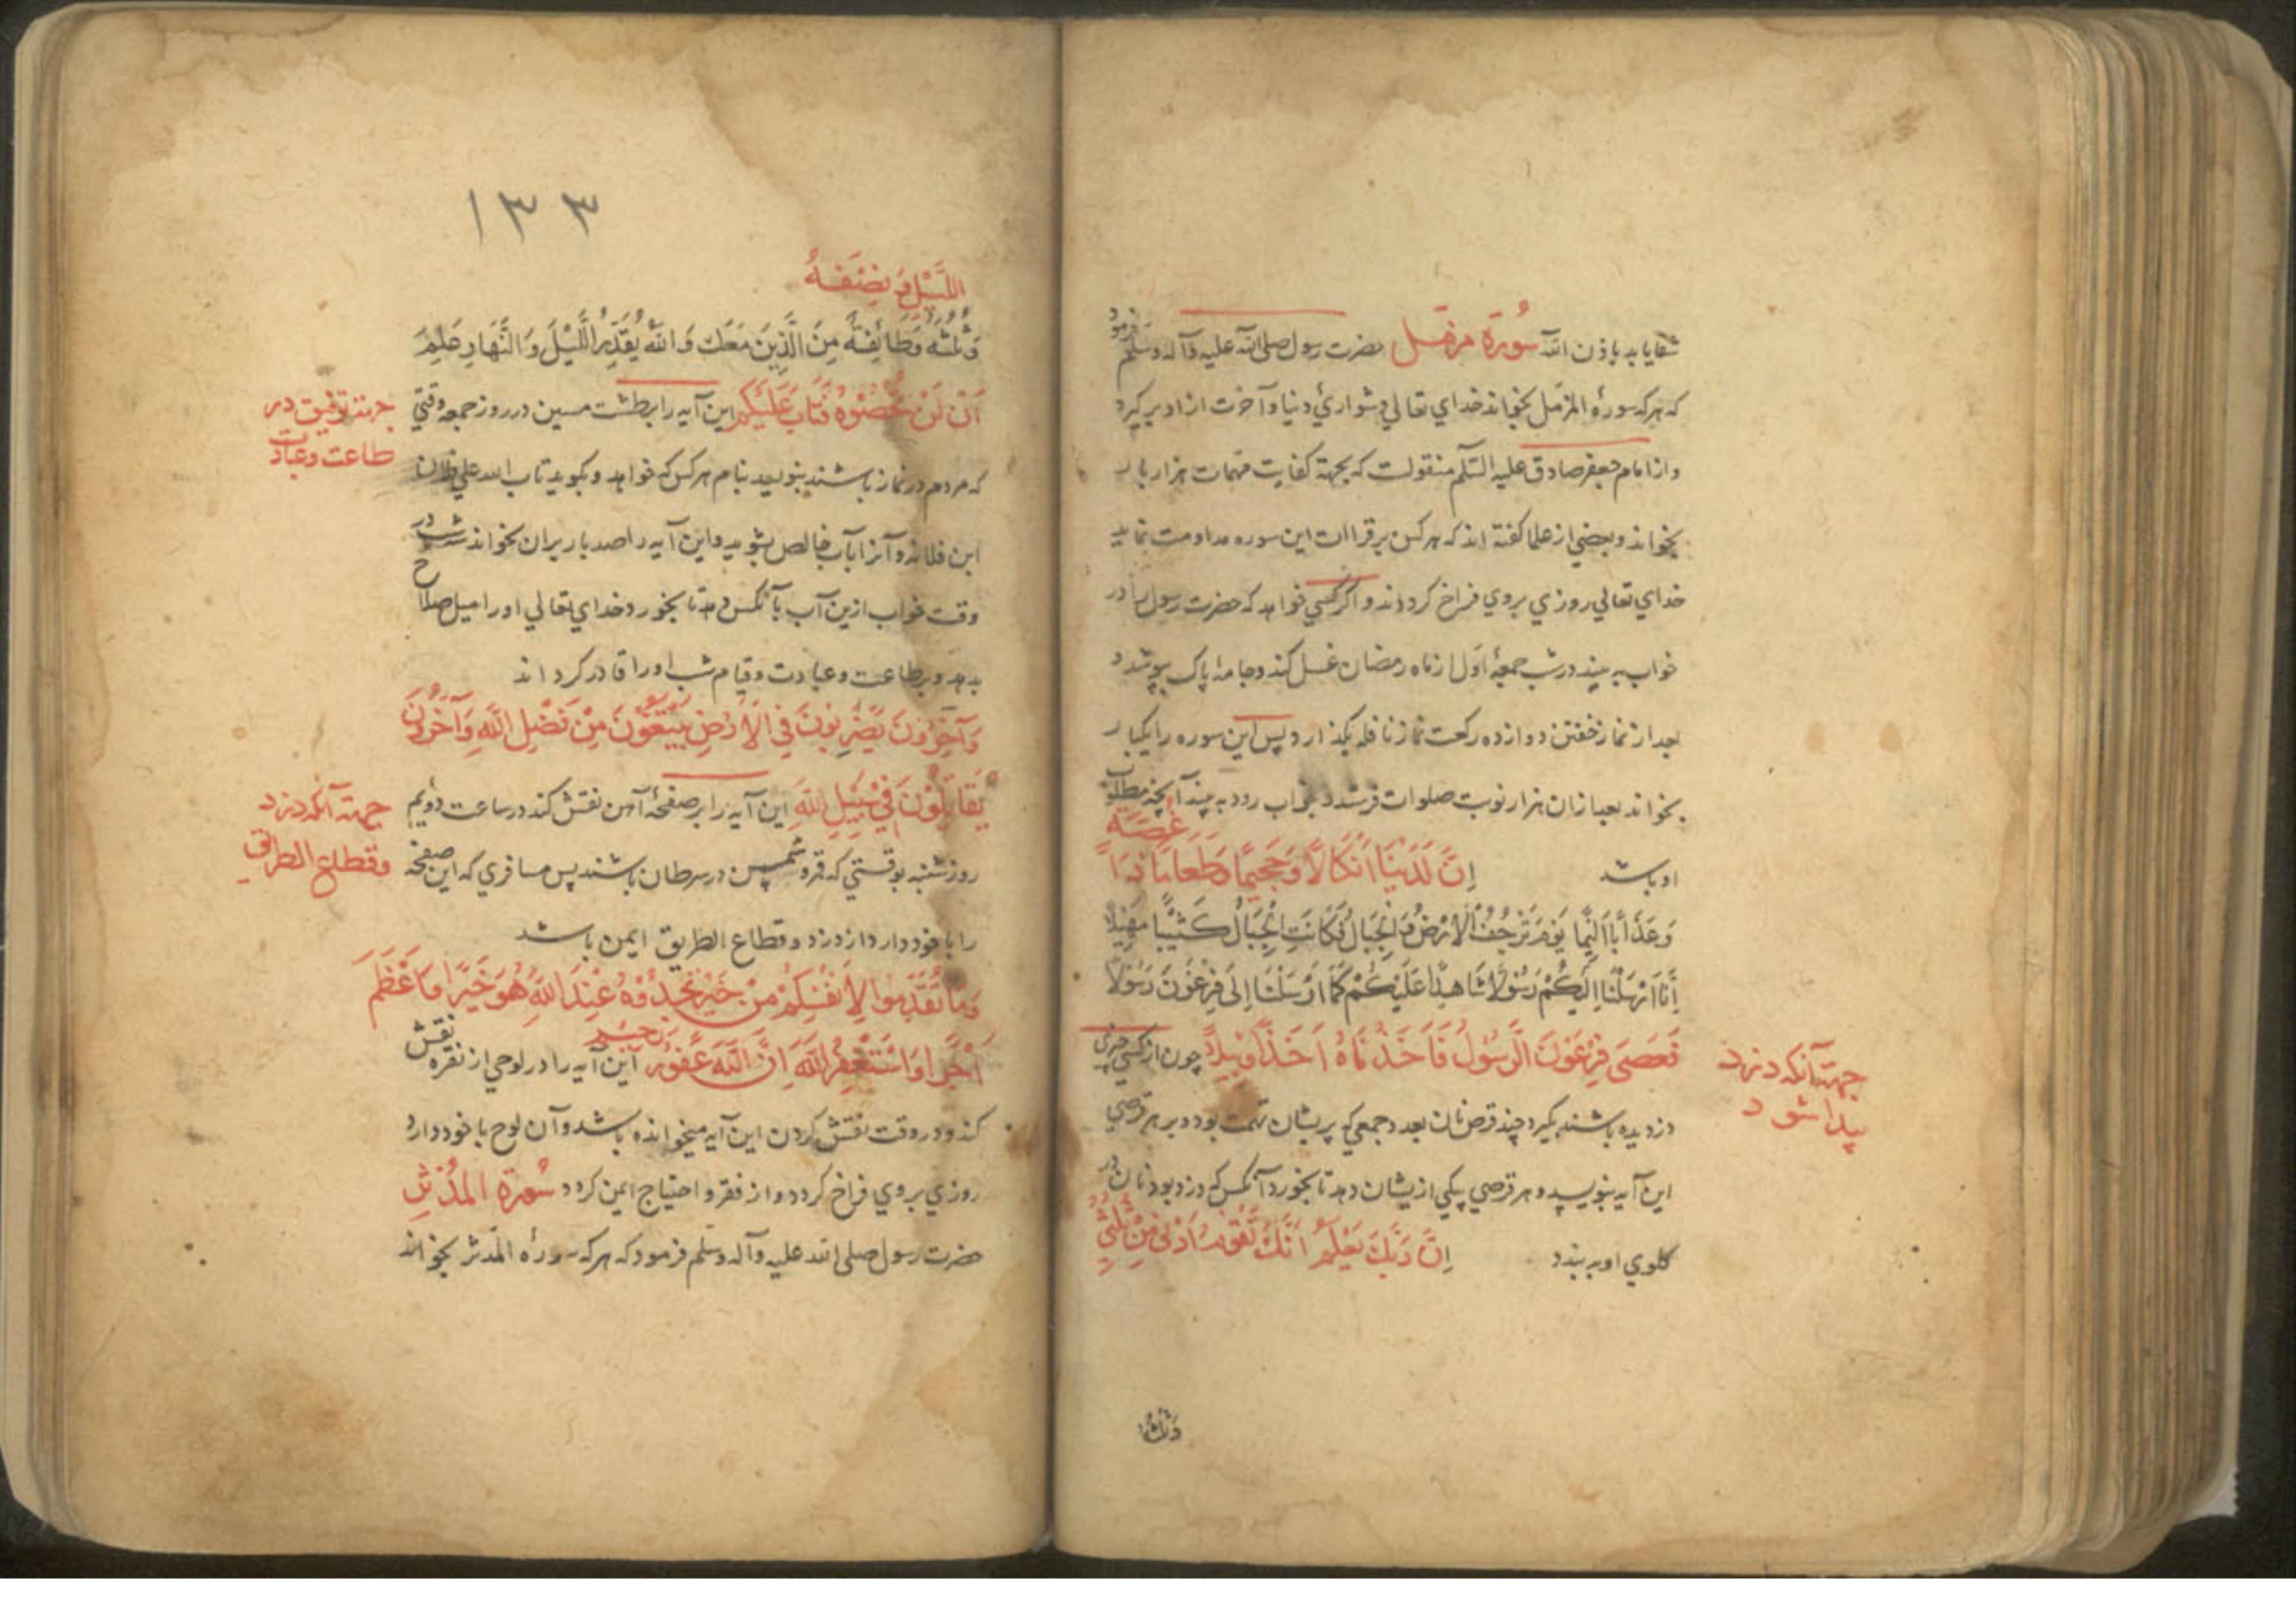 شفا یابد باذن الله سُورَة مزمّل حضرت رسول صلی الله علیه وآله وسلّم فرمود
که هرکه سورهٔ المزمّل بخواند خدای تعالی دشواریٔ دنیا وآخرت از او برگیرد
واز امام جعفر صادق علیه السّلم منقولست که بجهة کفایت مهمات هزار بار
بخواند وبعضی از علما کفته اند که هرکس برقراات این سوره مداومت نماید
خدای تعالی روزی بروی فراخ کرداند واکر کسی خواهد که حضرت رسول را در
خواب به بیند درشب جمعهٔ اوّل از ماه رمضان غسل کند وجامهٔ پاک بپوشد و
بعد از نماز خفتن دوازده رکعت نماز نافله بکذارد پس این سوره را یکبار
بخواند بعد ازان هزار نوبت صلوات فرستد وبخواب رود به بیند آنچه مطلوب
او باشد اِنَّ لَدَیْنَا اَنْکَالًا وَجَحِیمًا وَطَعَامًا ذَا غُصَّةٍ
وَعَذَابًا اَلِیمًا یَوْمَ تَرْجُفُ الْاَرْضُ وَالْجِبَالُ وَکَانَتِ الْجِبَالُ کَثِیْبًا مَهِیْلًا
اِنَّا اَرْسَلْنَا اِلَیْکُمْ رَسُوْلًا شَاهِدًا عَلَیْکُمْ کَمَا اَرْسَلْنَا اِلَی فِرْعَوْنَ رَسُوْلًا
فَعَصَی فِرْعَوْنَ الرَّسُوْلَ فَاَخَذْنَاهُ اَخْذًا وَبِیلًا چون از کسی چیزی
جهة آنکه دزد
پیدا شود
دزدیده باشند بکیرد چند قرص نان بعدد جمعی که بریشان تهمت بود و بر هر قرصی
این آیه بنویسد وهر قرصی بیکی ازیشان دهد تا بخورد آنکس که دزد بود نان در
کلوی او ببندد اِنَّ رَبَّکَ یَعْلَمُ اَنَّکَ تَقُوْمُ اَدْنٰی مِنْ ثُلُثَیِ
وَثُلُثَهُ
١٣٣
اللَّیْلِ وَنِصْفَهُ
وَثُلُثَهُ وَطَائِفَةٌ مِنَ الَّذِینَ مَعَکَ وَاللهُ یُقَدِّرُ اللَّیْلَ وَالنَّهَارَ عَلِمَ
اَنْ لَنْ تُحْصُوْهُ فَتَابَ عَلَیْکُمْ این آیه را برطشت مسین در روز جمعه وقتی
جهة توفیق در
طاعت وعبادت
که مردم در نماز باشند بنویسد بنام هرکس که خواهد وبکوید تاب الله علی فلان
ابن فلانه وآنرا بآب خالص بشوید واین آیه را صد بار بران بخواند ودر شب
وقت خواب ازین آب بآنکس دهد تا بخورد خدای تعالی اورا میل صلاح
بدهد وبرطاعت وعبادت وقیام شب اورا قادر کرداند
وَآخَرُوْنَ یَضْرِبُوْنَ فِی الْاَرْضِ یَبْتَغُوْنَ مِنْ فَضْلِ اللهِ وَآخَرُوْنَ
یُقَاتِلُوْنَ فِی سَبِیْلِ اللهِ این آیه را برصفحهٔ آهن نقش کند درساعت دویّم
جهة آنکه دزد
وقطاع الطریق
روز شنبه بوقتی که قمر وشمس در سرطان باشند پس مسافری که این صفحه
را با خود دارد از دزد وقطاع الطریق ایمن باشد
وَمَا تُقَدِّمُوا لِاَنْفُسِکُمْ مِنْ خَیْرٍ تَجِدُوْهُ عِنْدَ اللهِ هُوَ خَیْرًا وَاَعْظَمَ
اَجْرًا وَاسْتَغْفِرُ اللهَ اِنَّ اللهَ غَفُوْرٌ رَحِیْمٌ این آیه را در لوحی از نقره نقش
کند ودر وقت نقش کردن این آیه میخوانده باشد وآن لوح با خود دارد
روزی بروی فراخ کردد واز فقر واحتیاج ایمن کردد سُورَة المُدَّثِّر
حضرت رسول صلی الله علیه وآله وسلّم فرمود که هرکه سورهٔ المدّثر بخواند